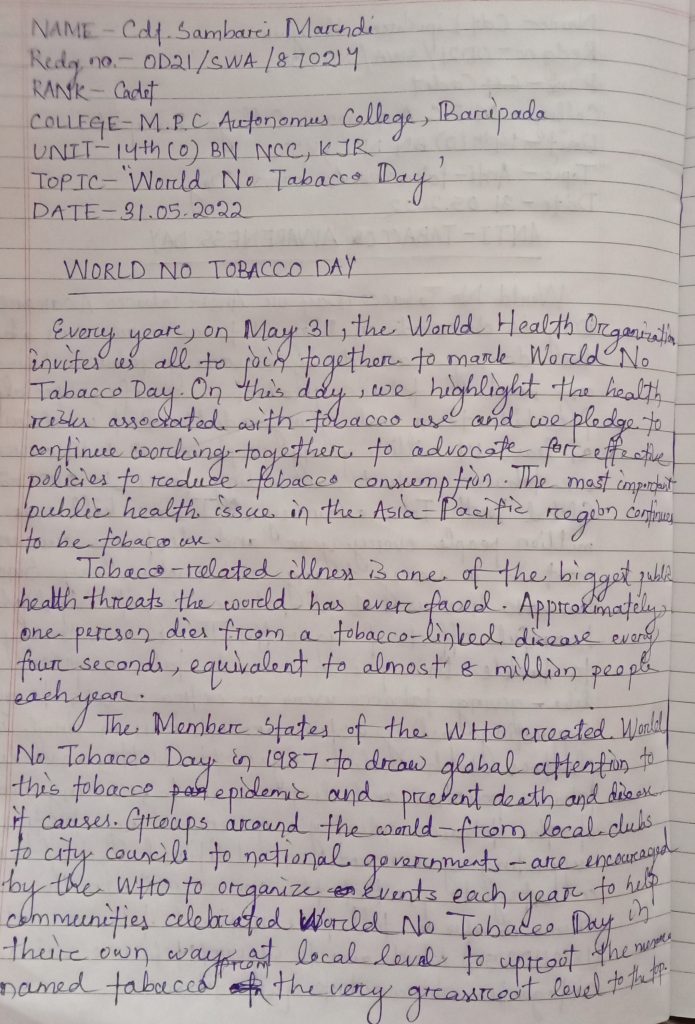 NAME - Cdt. Sambari Marndi
Redg. no. - OD21/SWA/870214
RANK - Cadet
COLLEGE - M.P.C Autonomus College, Baripada
UNIT - 14th (O) BN NCC, KJR
TOPIC - "World No Tabacco Day"
DATE - 31.05.2022
WORLD NO TOBACCO DAY
Every year, on May 31, the World Health Organization
invites us all to join together to mark World No
Tabacco Day. On this day, we highlight the health
risks associated with tobacco use and we pledge to
continue working together to advocate for effective
policies to reduce tobacco consumption. The most important
public health issue in the Asia-Pacific region continues
to be tobacco use.
Tobacco-related illness is one of the biggest public
health threats the world has ever faced. Approximately
one person dies from a tobacco-linked disease every
four seconds, equivalent to almost 8 million people
each year.
The Member states of the WHO created World
No Tobacco Day in 1987 to draw global attention to
this tobacco epidemic and prevent death and disease
it causes. Groups around the world - from local clubs
to city councils to national governments - are encouraged
by the WHO to organize events each year to help
communities celebrated World No Tobacco Day in
their own way at local level to uproot the
named tabacco from the very grassroot level to the top.